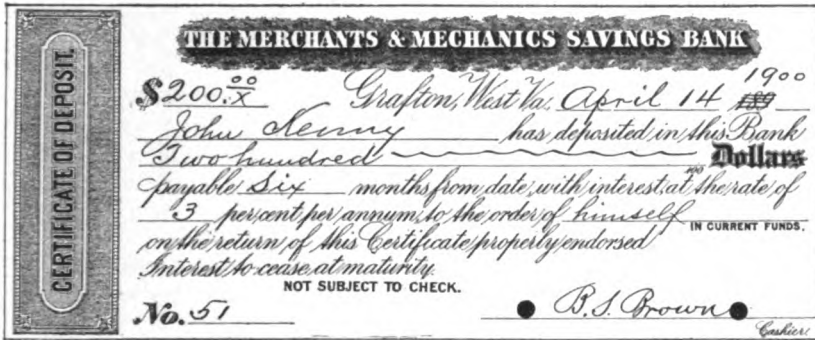 CERTIFICATE OF DEPOSIT.
THE MERCHANTS & MECHANICS SAVINGS BANK
$200.00/X Grafton, West Va. April 14 1900 189
John Kenny has deposited in this Bank
Two hundred Dollars
100
payable Six months from date, with interest at the rate of
3 per cent, per annum, to the order of himself IN CURRENT FUNDS.
on the return of this Certificate properly endorsed
Interest to cease at maturity.
NOT SUBJECT TO CHECK.
No. 51 B.S. Brown
Cashier.